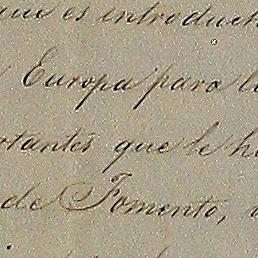 que es introduct
Europa para l
rtantes que le h
de Fomento,